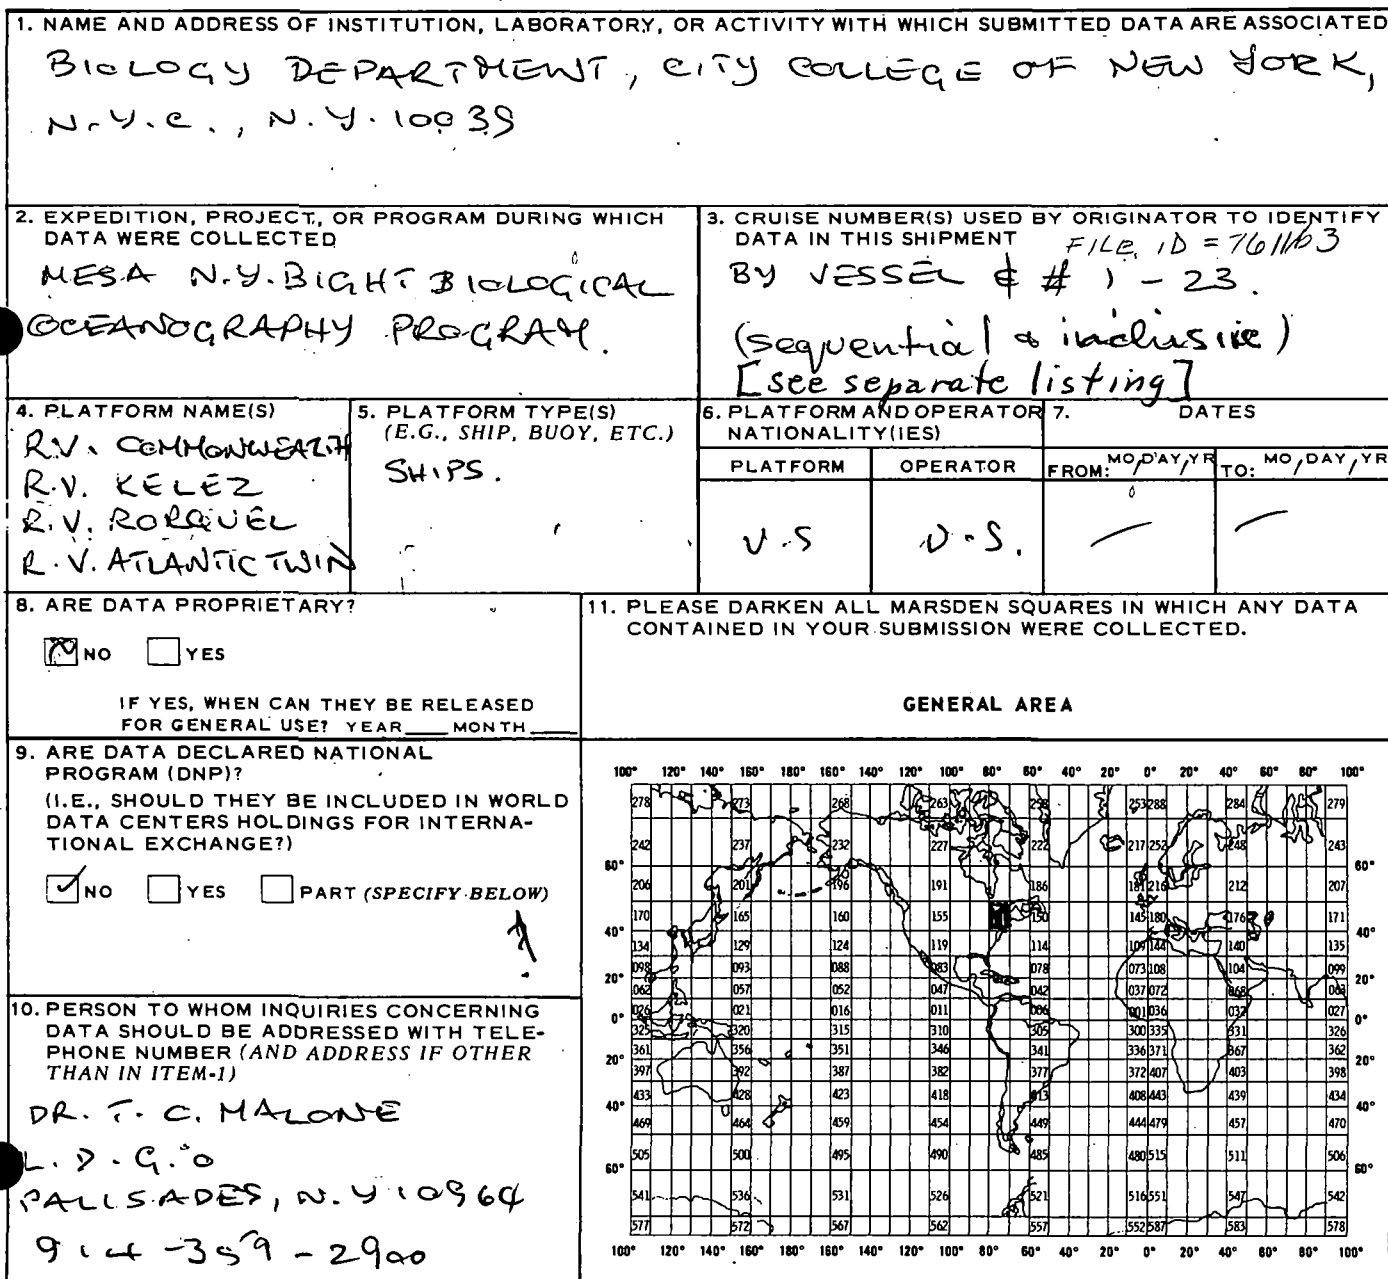 1. NAME AND ADDRESS OF INSTITUTION, LABORATORY, OR ACTIVITY WITH WHICH SUBMITTED DATA ARE ASSOCIATED
BIOLOGY DEPARTMENT, CITY COLLEGE OF NEW YORK,
N.Y.C., N.Y. 10039
2. EXPEDITION, PROJECT, OR PROGRAM DURING WHICH
DATA WERE COLLECTED
MESA N.Y. BIGHT BIOLOGICAL
OCEANOGRAPHY PROGRAM.
3. CRUISE NUMBER(S) USED BY ORIGINATOR TO IDENTIFY
DATA IN THIS SHIPMENT FILE ID =
BY VESSEL & # 1 - 23.
(sequential & inclusive)
[see separate listing]
4. PLATFORM NAME(S)
R.V. COMMONWEALTH
R.V. KELEZ
R.V. RORQUEL
R.V. ATLANTIC TWIN
5. PLATFORM TYPE(S)
(E.G., SHIP, BUOY, ETC.)
SHIPS.
6. PLATFORM AND OPERATOR
NATIONALITY(IES)
PLATFORM OPERATOR
U.S U.S.
7. DATES
FROM: MO/DAY/YR TO: MO/DAY/YR
8. ARE DATA PROPRIETARY?
NO YES
IF YES, WHEN CAN THEY BE RELEASED
FOR GENERAL USE? YEAR____ MONTH____
9. ARE DATA DECLARED NATIONAL
PROGRAM (DNP)?
(I.E., SHOULD THEY BE INCLUDED IN WORLD
DATA CENTERS HOLDINGS FOR INTERNA-
TIONAL EXCHANGE?)
NO YES PART (SPECIFY BELOW)
10. PERSON TO WHOM INQUIRIES CONCERNING
DATA SHOULD BE ADDRESSED WITH TELE-
PHONE NUMBER (AND ADDRESS IF OTHER
THAN IN ITEM-1)
DR. T. C. MALONE
L.D.G.O
PALISADES, N.Y 10964
914-359-2900
11. PLEASE DARKEN ALL MARSDEN SQUARES IN WHICH ANY DATA
CONTAINED IN YOUR SUBMISSION WERE COLLECTED.
GENERAL AREA
100° 120° 140° 160° 180° 160° 140° 120° 100° 80° 60° 40° 20° 0° 20° 40° 60° 80° 100°
278 273 268 263 258 253 288 284 279
242 237 232 227 222 217 252 248 243
60° 60°
206 201 196 191 186 181 216 212 207
170 165 160 155 150 145 180 176 171
40° 40°
134 129 124 119 114 109 144 140 135
098 093 088 083 078 073 108 104 099
20° 20°
062 057 052 047 042 037 072 068 063
026 021 016 011 006 001 036 032 027
0° 0°
325 320 315 310 305 300 335 331 326
361 356 351 346 341 336 371 367 362
20° 20°
397 392 387 382 377 372 407 403 398
433 428 423 418 413 408 443 439 434
40° 40°
469 464 459 454 449 444 479 457 470
505 500 495 490 485 480 515 511 506
60° 60°
541 536 531 526 521 516 551 547 542
577 572 567 562 557 552 587 583 578
100° 120° 140° 160° 180° 160° 140° 120° 100° 80° 60° 40° 20° 0° 20° 40° 60° 80° 100°